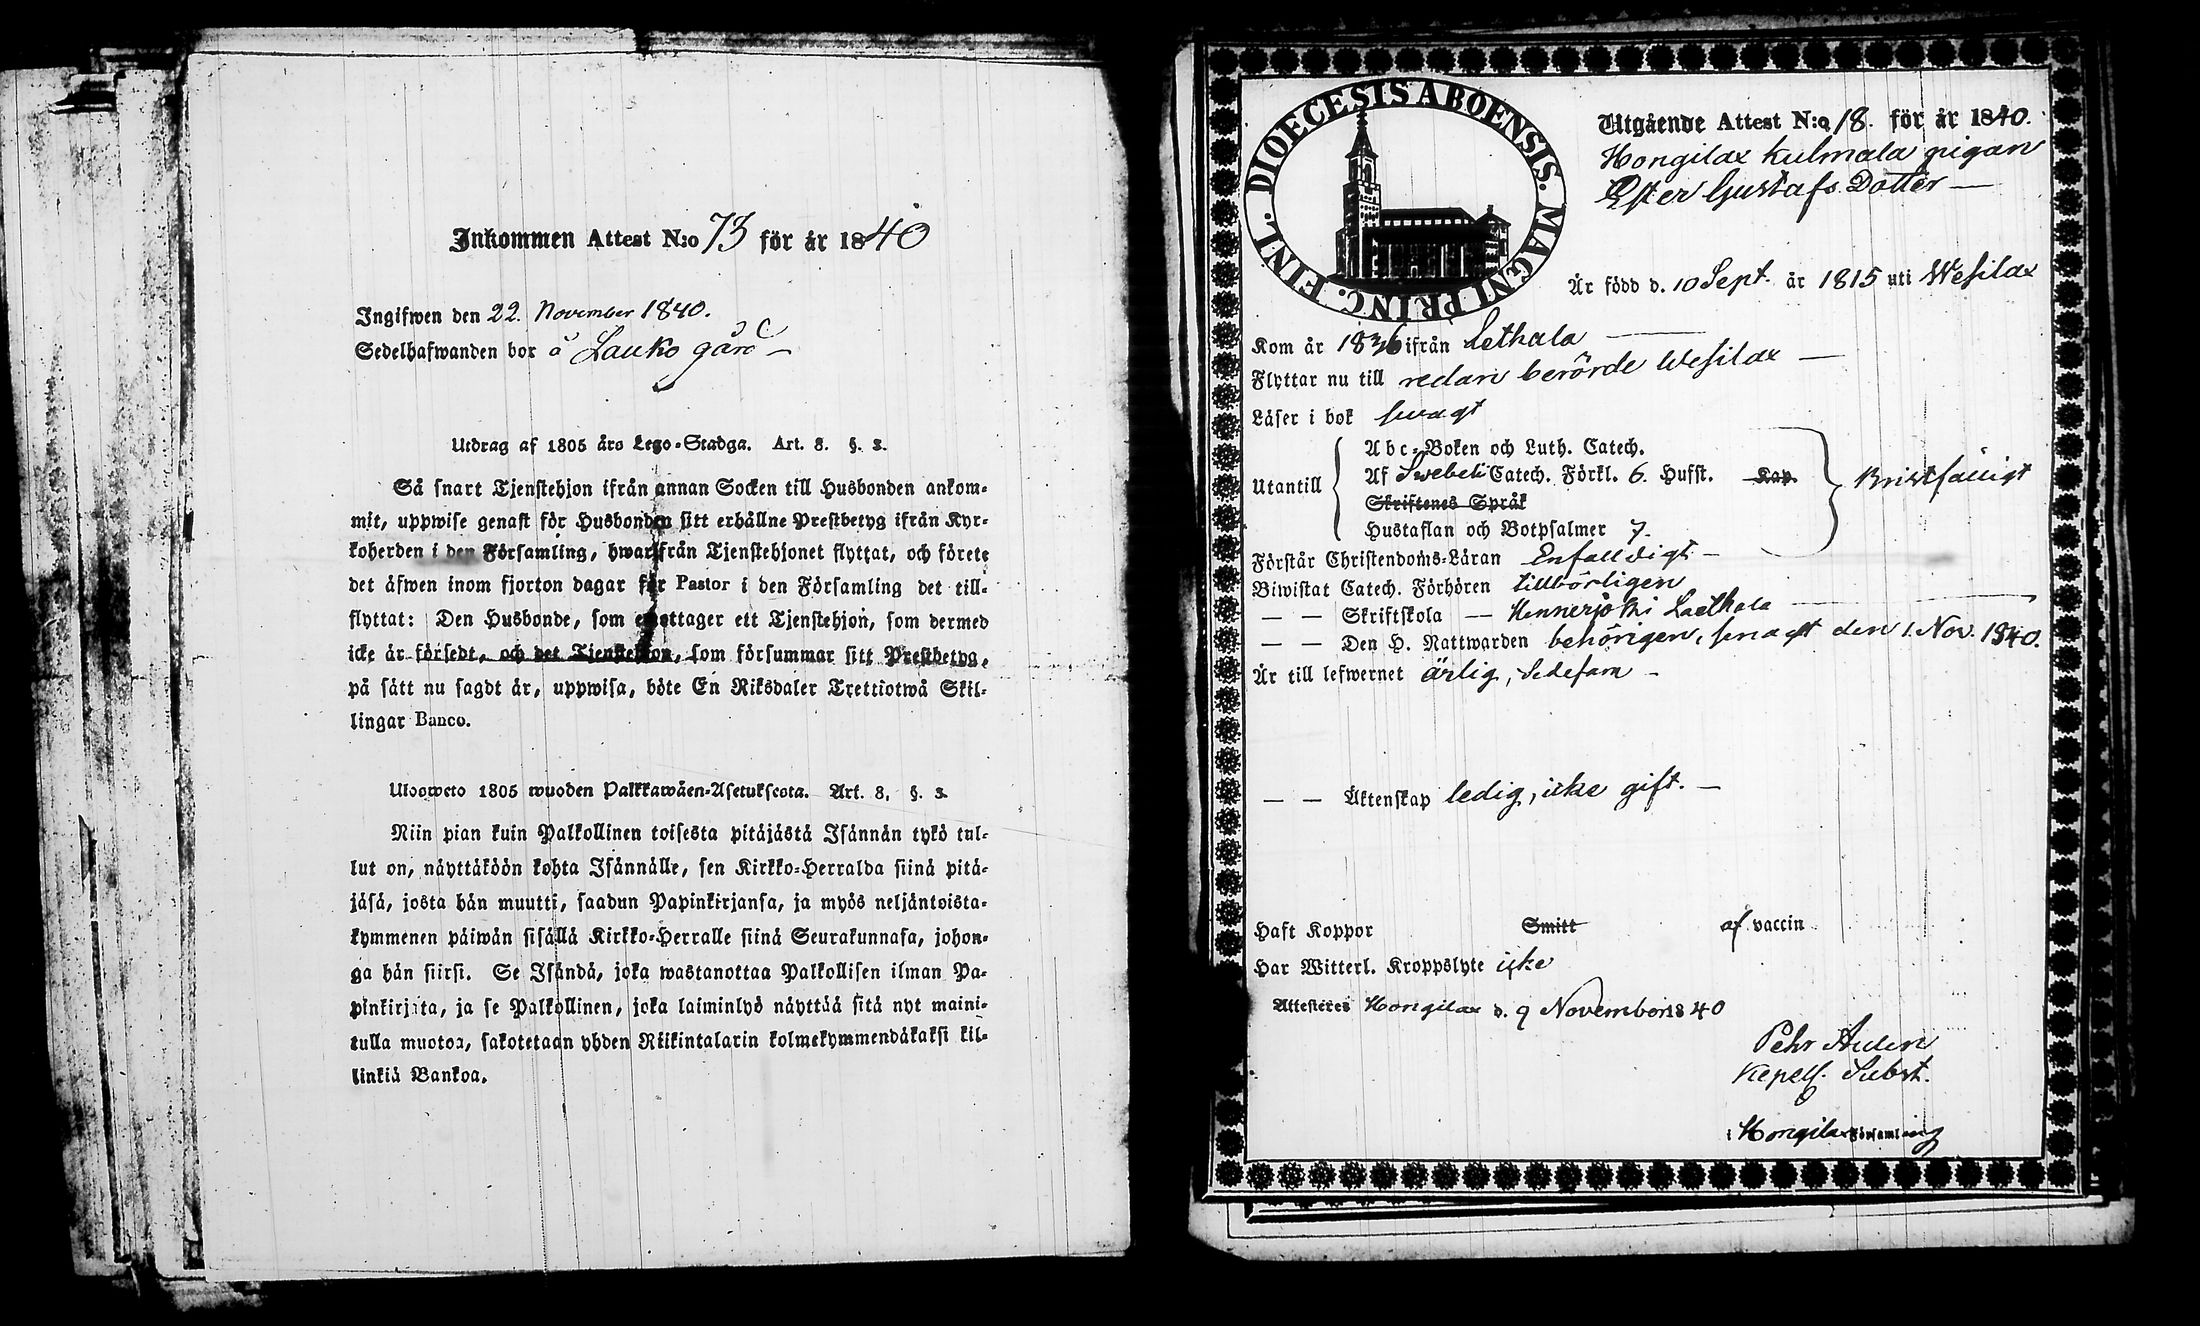 Inkommen Attest N:o 73 för år 1840
Ingifwen den 22. November 1840.
Sedelhafwanden bor å Lauko gård
Utdrag af 1805 års Lego-Stadga. Art. 8. §. 3.
Så snart Tjenstehjon ifrån annan Socken till Husbonden ankom-
mit, uppwise genast för Husbonden sitt erhållne Prestbetyg ifrån Kyr-
koherden i den Församling, hwarifrån Tjenstehjonet flyttat, och förete
det äfwen inom fjorton dagar för Pastor i den Församling det till-
flyttat: Den Husbonde, som emottager ett Tjenstehjon, som dermed
icke är försedt, och det Tjenstehjon, som försummar sitt Prestbetyg,
på sätt nu sagdt är, uppwisa, böte En Riksdaler Trettiotwå Skil-
lingar Banco.
Ulosweto 1805 wuoden Palkkawäen-Asetuksesta. Art. 8. §. 3.
Niin pian kuin Palkollinen toisesta pitäjästä Isännän tykö tul-
lut on, näyttäköön kohta Isännälle, sen Kirkko-Herralda siinä pitä-
jäsä, josta hän muutti, saadun Papinkirjansa, ja myös neljäntoista-
kymmenen päiwän sisällä Kirkko-Herralle siinä Seurakunnasa, johon-
ga hän siirsi. Se Isändä, joka wastanottaa Palkollisen ilman Pa-
pinkirjata, ja se Palkollinen, joka laiminlyö näyttää sitä nyt maini-
tulla muotoa, sakotetaan yhden Riikintalarin kolmekymmendäkaksi kil-
linkiä Bankoa.
DIOECESIS ABOENSIS. MAGNI PRINC. FINL.
Utgående Attest N:o 18. för år 1840.
Hongilax Kulmala pigan
Ester Gustafs Dotter —
Är född d. 10 Sept. år 1815 uti Wesilax
Kom år 1836 ifrån Lethala —
Flyttar nu till redan berörde Wesilax —
Läser i bok swagt
Utantill
Abc-Boken och Luth. Catech.
Af Swebeli Catech. Förkl. 6. Hufst. Kap.
Skriftenes Språk
Hustaflan och Botpsalmer 7.
Bristfälligt
Förstår Christendoms-Läran Enfalldigt —
Biwistat Catech. Förhören tillbörligen
— — Skriftskola —
— — Den H. Nattwarden behörigen, senast den 1. Nov. 1840.
Är till lefwernet ärlig, sedesam —
— — Äktenskap ledig, icke gift. —
Haft Koppor Smitt af vaccin
Har Witterl. Kroppslyte icke
Attesteres Hongilax d. 9 November 1840
Pehr
Kapell. Subst.
i Hongilax Församling